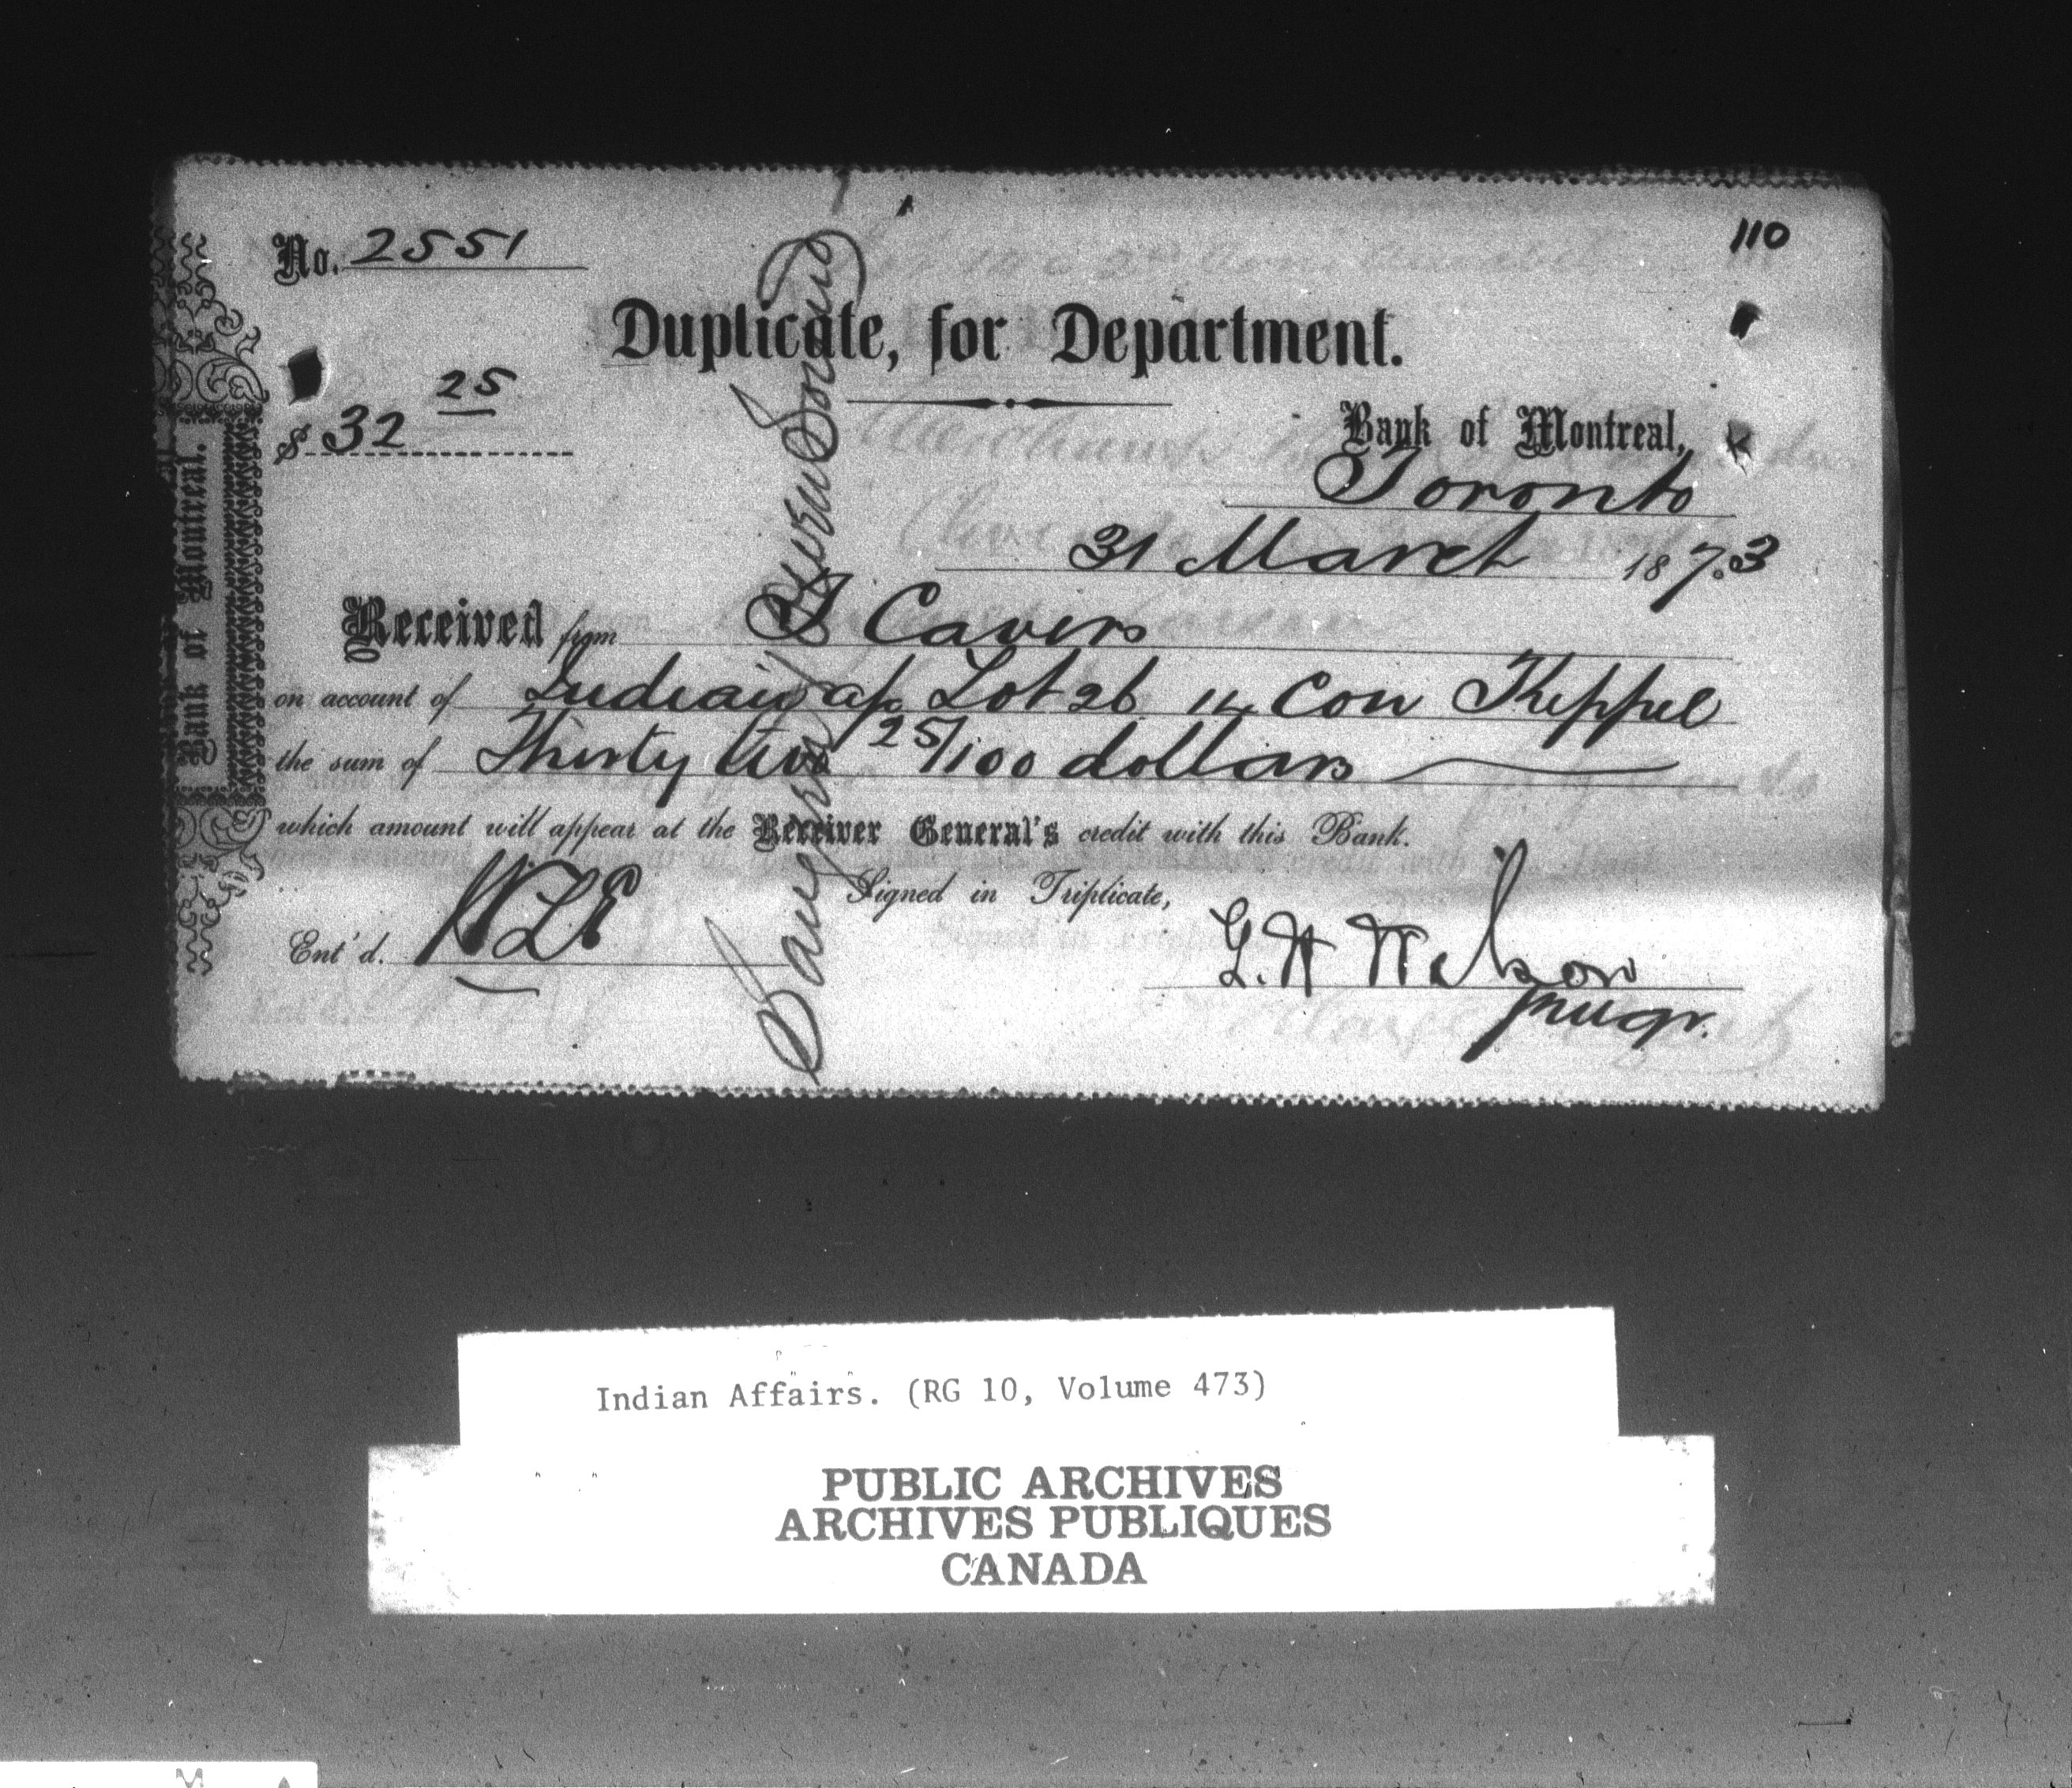 110
No. 2551
Duplicate, for Department.
$ 32 25
Bank of Montreal,
Toronto
31 March 1873
Received from J Cavers
on account of Indian a/c Lot 26 14 Con Keppel
the sum of Thirty two 25/100 dollars
which amount will appear at the Receiver General's credit with this Bank.
Signed in Triplicate,
Ent'd.
G. H
mugr.
Bank of Montreal.
Owen Sound
Indian Affairs. (RG 10, Volume 473)
PUBLIC ARCHIVES
ARCHIVES PUBLIQUES
CANADA